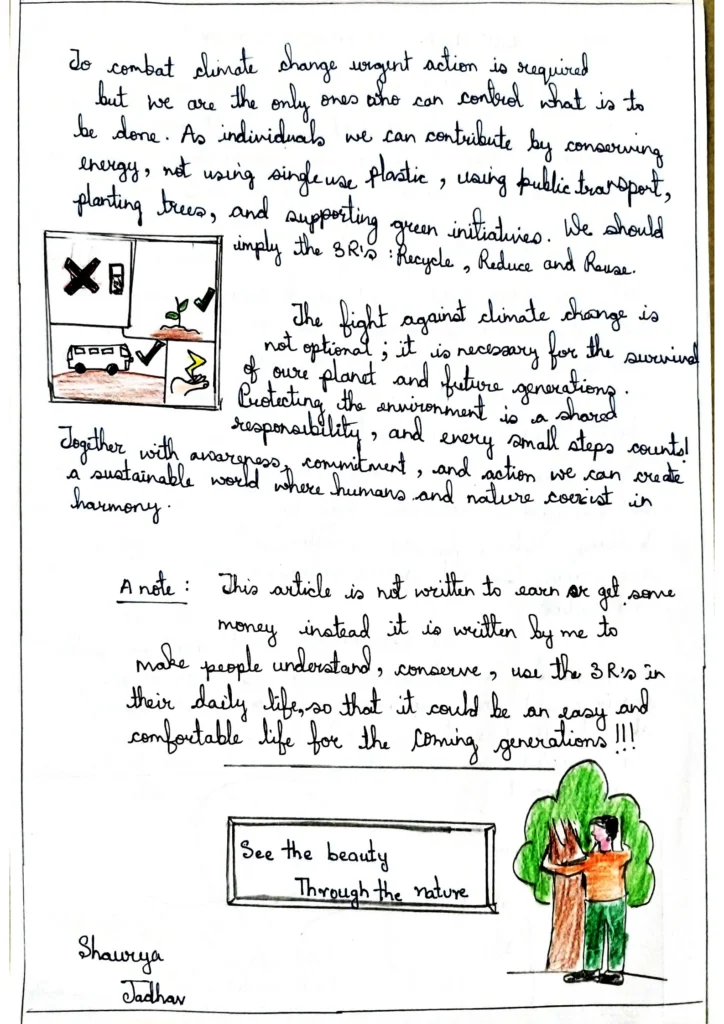 To combat climate change urgent action is required
but we are the only ones who can control what is to
be done. As individuals we can contribute by conserving
energy, not using single use plastic, using public transport,
planting trees, and supporting green initiatives. We should
imply the 3R's : Recycle, Reduce and Reuse.
The fight against climate change is
not optional; it is necessary for the survival
of oure planet and future generations.
Protecting the environment is a shared
responsibility, and every small steps counts!
Together with awareness, commitment, and action we can create
a sustainable world where humans and nature coexist in
harmony.
A note : This article is not written to earn or get some
money instead it is written by me to
make people understand, conserve, use the 3R's in
their daily life, so that it could be an easy and
comfortable life for the coming generations!!!
See the beauty
Through the nature
Shaurya
Jadhav